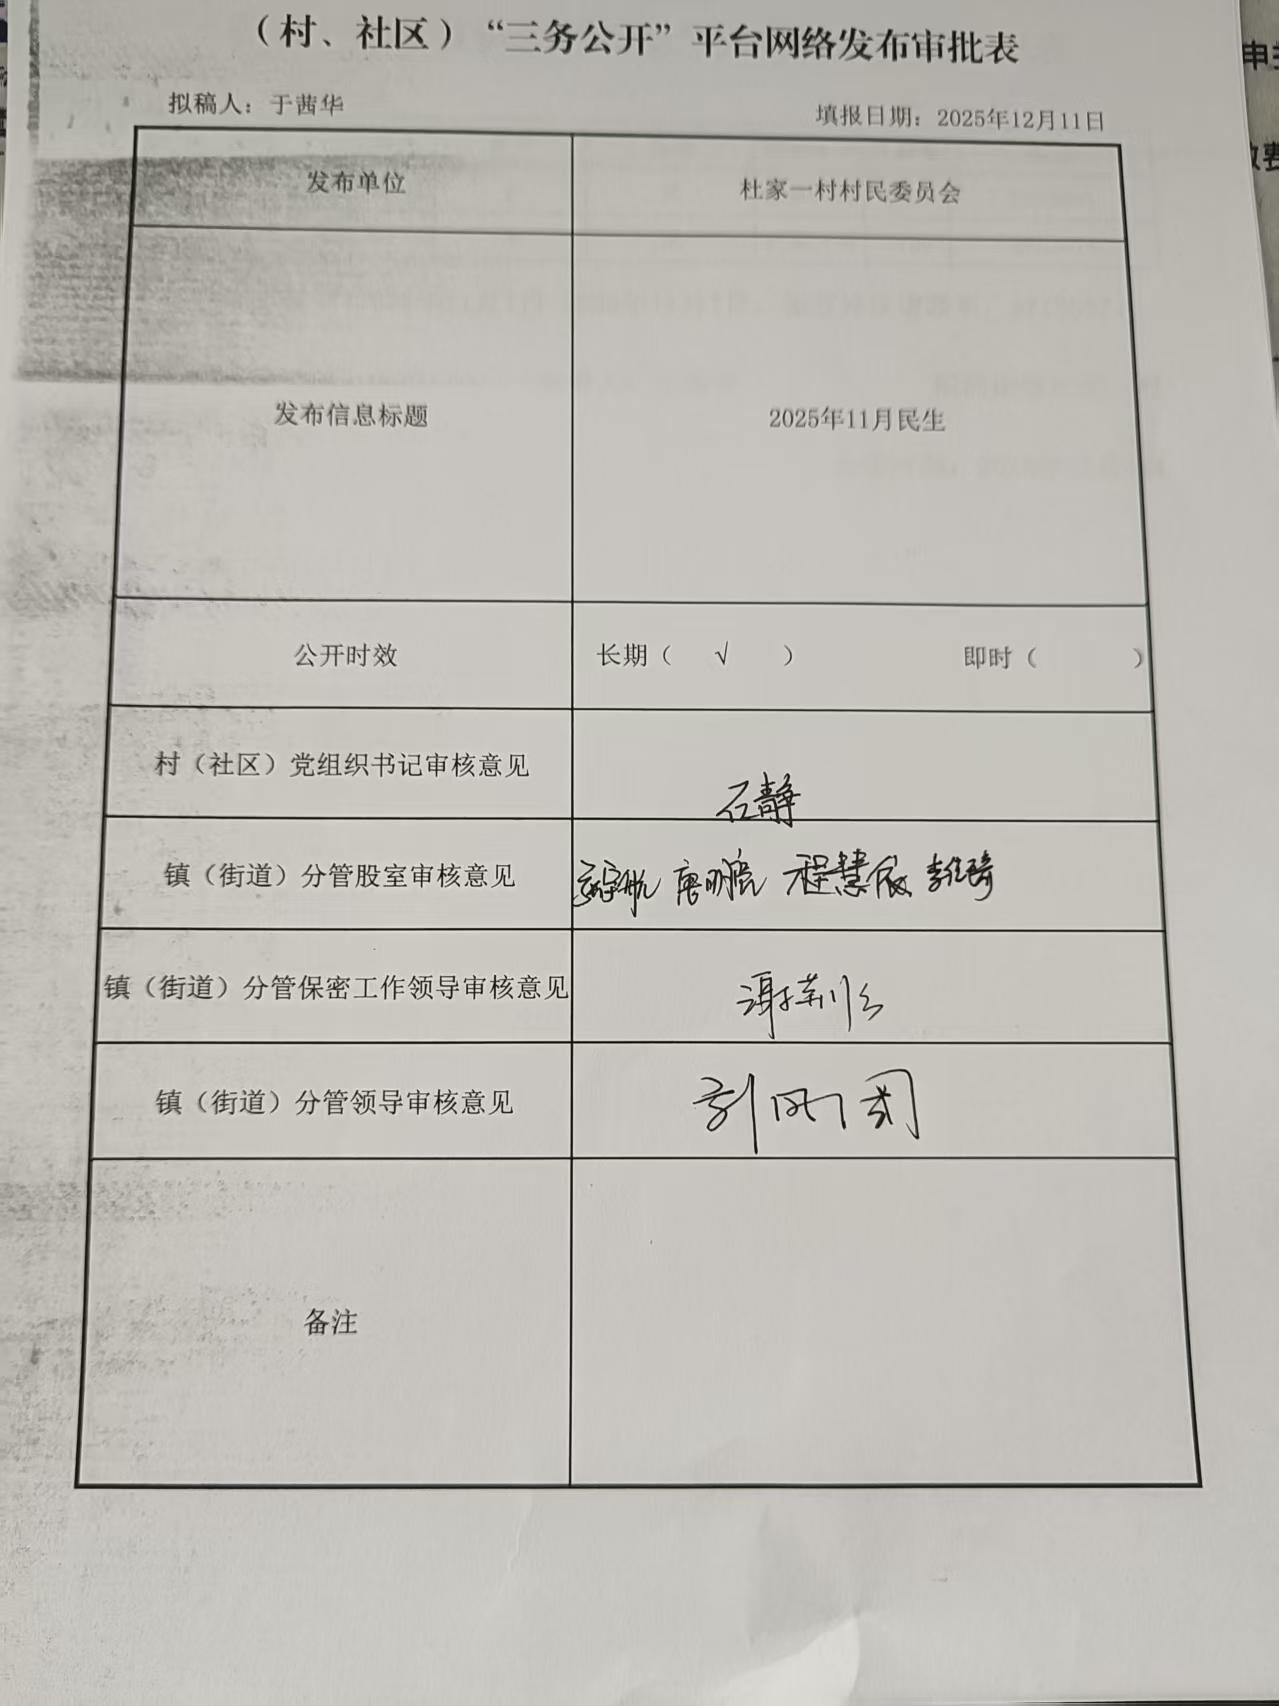 （村、社区）“三务公开”平台网络发布审批表
拟稿人：于茜华 填报日期：2025年12月11日
发布单位 杜家一村村民委员会
发布信息标题 2025年11月民生
公开时效 长期（ √ ） 即时（ ）
村（社区）党组织书记审核意见 石静
镇（街道）分管股室审核意见 唐鹏 程慧敏
镇（街道）分管保密工作领导审核意见
镇（街道）分管领导审核意见
备注